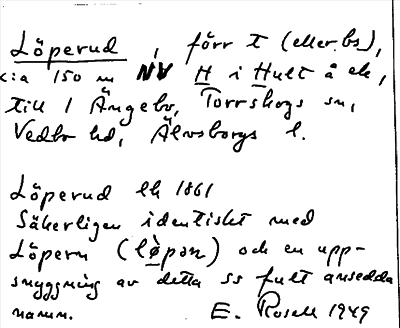 Löperud, förr t (eller bs),
cia 150 m NV H i Hult å ek,
till 1 Ängebo, Torrskogs sn,
Vedbo hd, Älvsborgs l.
Löperud lh 1861
Säkerligen identiskt med
Löpern (lø̀pən) och en upp-
snyggning av detta ss fult ansedda
namn. E. Rosell 1949